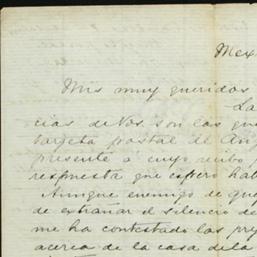 Mex
Mis muy queridos
La
cias de Vos. son las que
tarjeta postal de Ang
presente a cuyo recibo
respuesta que espero hab
Aunque enemigo de que
de estrañar el silencio de
me ha contestado las pre
acerca de la casa de la